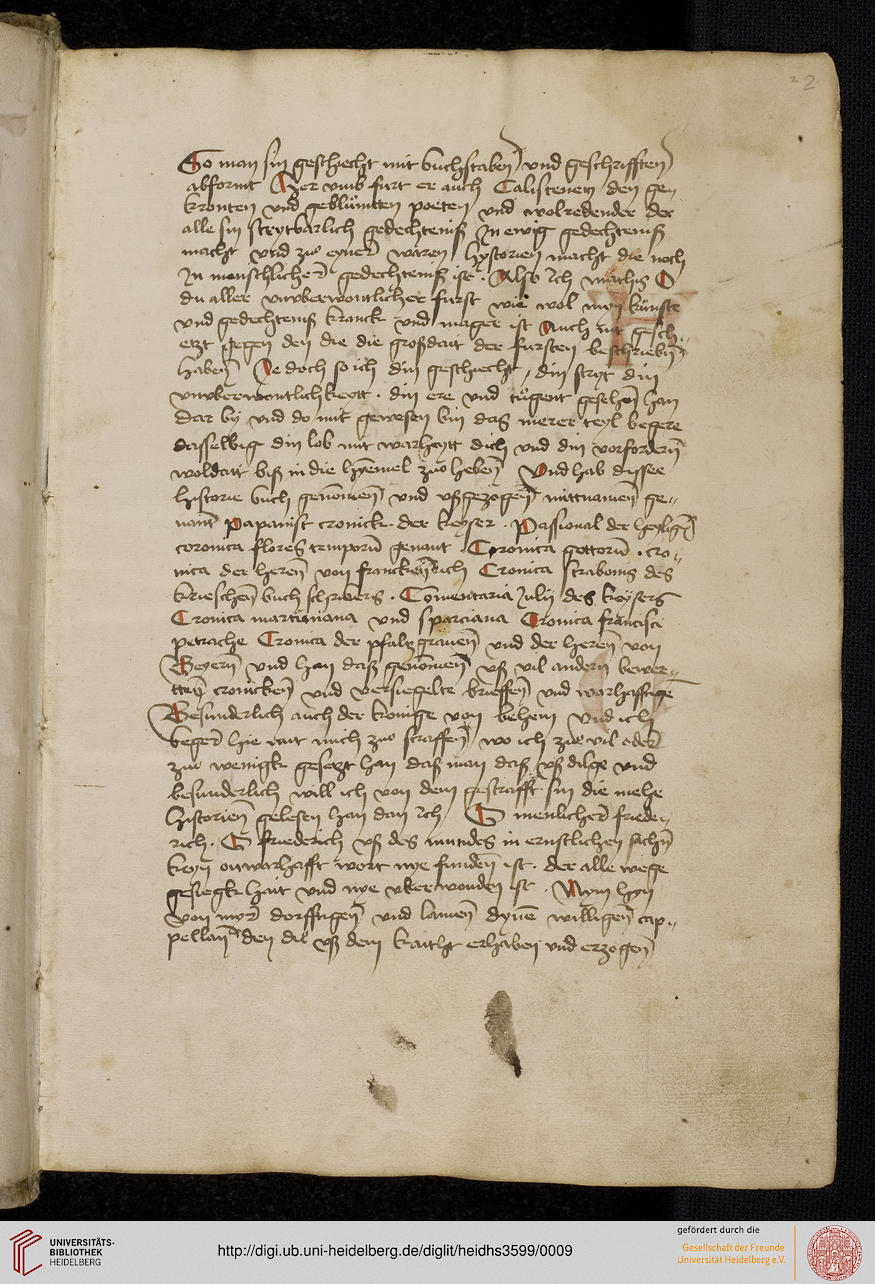 2
So man sin geschiecht mit buchstaben und geschrifften
abformt Aber umb furt er auch Calistenem den ge„
kronten und geblümtten poeten und wolredender der
alle sin strytbarlich gedechteniß In ewig gedechteniß
macht und zuo eyner waren hystorien macht die noch
In menschlicher gedechteniß ist . Also Ich mathis O
du aller unuberwontlicher furst wie wol myn künste
und gedechteniß kranck und mager ist Auch nit gesch„
etzt gegen den die die großdait der fursten beschrieben
haben Ie doch so ich din geschiecht / din stryt din
unuberwontlichkeytt . din ere und tügent gesehen han
Dar by und do mit gewesen bin das merer teyl begere
dasselbig din lob mit warheytt dich und din vorfordern
woldatt biß in die hyemel zuo heben Und hab disse
historie buch genomen und ußgezogen mittnamen ge„
nant papanist cronick . der keyser . Passional der heyligen
coronica flores temporum genant . Coronica gottorum . cro„
nica der heren von franckenrich Cronica strabonis des
krieschen buch schribers . Comentaria Julii des keysers
Cronica martiniana und sparciana Cronica francisci
petrache Cronica der pfaltzgrauen und der heren von
Beyern und han daß genomen uß vil andern bewer„
tten cronicken und versiegelte brieffen und warhafftige
Besunderlich auch der konige von behem Und ich
beger hie mit mich zuo straffen wo ich zuo vil oder
zuo wenigk gesetzt han daß man daß uß dilge und
besunderlich will ich von dem gestrafft sin die mehe
historien gelesen han dan Ich O menlicher friede„
rich . O friederich uß des mundes in ernstlichen sachen
keyn onwarhafft wort nye funden ist . der alle wege
gesiegk hait und nye uberwonden ist . Nym hyn
von myr dorfftigen und lamen dynen willigen cap„
pellan den du uß dem kaitht erhaben und erzogen
UNIVERSITÄTS-
BIBLIOTHEK
HEIDELBERG
http://digi.ub.uni-heidelberg.de/diglit/heidhs3599/0009
gefördert durch die
Gesellschaft der Freunde
Universität Heidelberg e.V.